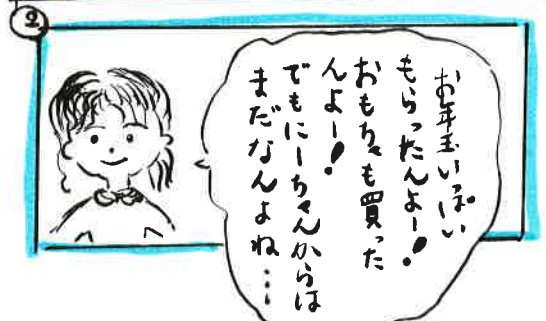 ②
お年玉いっぱい
もらったんよー!
おもちゃも買った
んよー!
でもにーちゃんからは
まだなんよね…